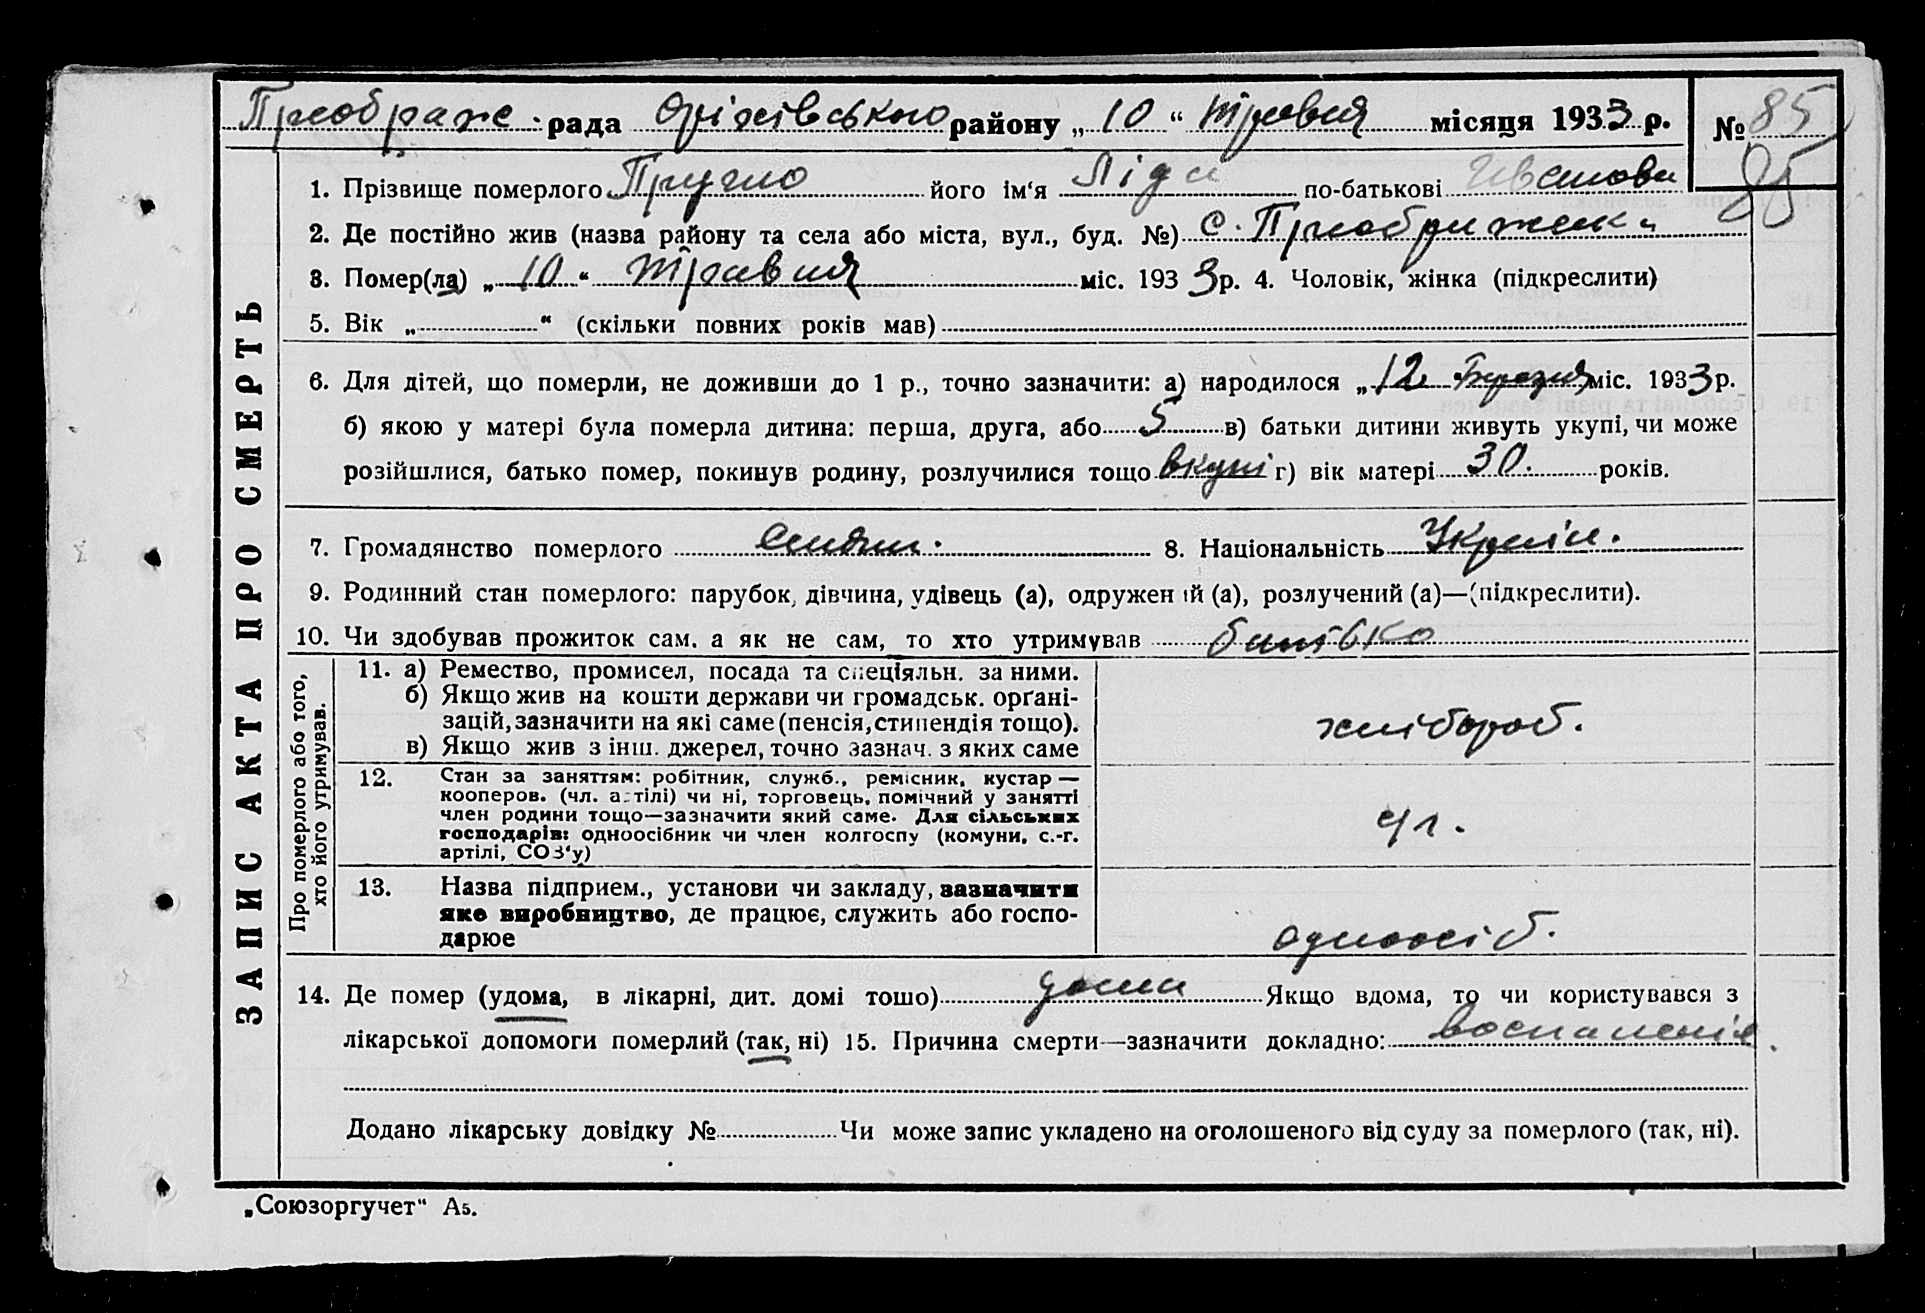 Преображе. рада Оріхівського району „10“ Травня місяця 1933 р. № 85
85
1. Прізвище померлого його ім'я Ліда по-батькові Иванова
2. Де постійно жив (назва району та села або міста, вул., буд. №) с. Преображенка
3. Помер(ла) „10“ Травня міс. 1933 р. 4. Чоловік, жінка (підкреслити)
5. Вік „ “ (скільки повних років мав)
6. Для дітей, що померли, не доживши до 1 р., точно зазначити: а) народилося „12 Березня міс. 1933 р.
б) якою у матері була померла дитина: перша, друга, або 5 в) батьки дитини живуть укупі, чи може
розійшлися, батько помер, покинув родину, розлучилися тощо вкупі г) вік матері 30. років.
7. Громадянство померлого 8. Національність Україн.
9. Родинний стан померлого: парубок, дівчина, удівець (а), одружений (а), розлучений (а)—(підкреслити).
10. Чи здобував прожиток сам, а як не сам, то хто утримував батько
ЗАПИС АКТА ПРО СМЕРТЬ
Про померлого або того,
хто його утримував.
11. а) Ремество, промисел, посада та спеціяльн. за ними.
б) Якщо жив на кошти держави чи громадськ. органі-
зацій, зазначити на які саме (пенсія, стипендія тощо).
в) Якщо жив з інш. джерел, точно зазнач. з яких саме
хлібороб.
12. Стан за заняттям: робітник, служб., ремісник, кустар —
кооперов. (чл. артілі) чи ні, торговець, помічний у занятті
член родини тощо—зазначити який саме. Для сільських
господарів: одноосібник чи член колгоспу (комуни, с.-г.
артілі, СОЗ'у)
13. Назва підприєм., установи чи закладу, зазначити
яке виробництво, де працює, служить або госпо-
дарює
одноосіб.
14. Де помер (удома, в лікарні, дит. домі тощо) дома Якщо вдома, то чи користувався з
лікарської допомоги померлий (так, ні) 15. Причина смерти—зазначити докладно: воспаленія.
Додано лікарську довідку № Чи може запис укладено на оголошеного від суду за померлого (так, ні).
„Союзоргучет“ А5.